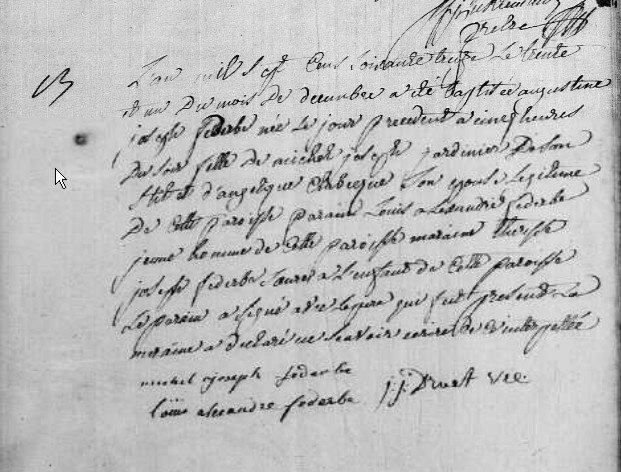 prebre
B
L'an mil sept cens soixante treize Le trente
et un Du mois De decembre a été baptisée augustine
joseph federbe née Le jour precedent a cinq heures
Du soir fille De michel joseph jardinier De son
stil et d'angelique son epouse Legitime
De cette paroisse parain Louis alexandre federbe
jeune homme de cette paroisse maraine therese
joseph federbe soeur a L'enfant de cette paroisse
Le parain a signé avec Le pere qui fut present La
maraine a declaré ne scavoir ecrire de ce interpellée
michel joseph federbe
louis alexandre federbe j: j: Druet vic: